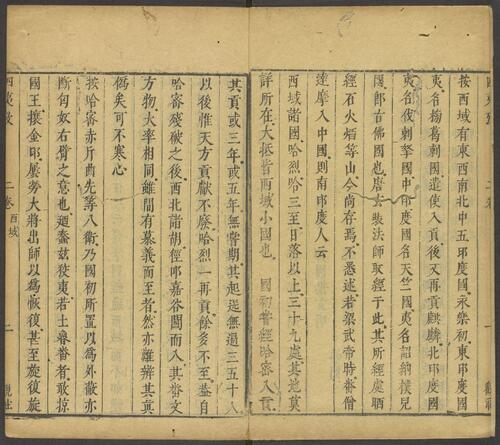 按西域有東西南北中五印度國永樂初東印度國
夷名榜葛剌國遣使入貢後又再貢麒麟北印度國
夷名夜剌拏國中印度國名天竺國夷名詔納撲兒
國即古佛國也唐玄裝法師取經于此其所經處晒
經石火焰等山今尚存焉不悉述若梁武帝時番僧
達摩入中國則南印度人云
西域諸國哈烈哈三至日落以上三十九處其地莫
詳所在大抵皆西域小國也 國初皆經哈密入貢
其貢或三年或五年無常期其起送無過三五十人
以後惟天方貢獻不廢哈烈一再貢餘多不至蓋自
哈密殘破之後西北諸胡徑叩嘉谷關而入其番文
方物大率相同離間有慕義而至者然亦難辨其真
偽矣可不寒心
按哈密赤斤茜先等八衛乃國初所置以為外蔽亦
斷匈奴右臂之意也廼蠢茲狡夷若土魯番者敢掠
國王攘金印屢勞大將出師以為恢復甚至旋復旋
四夷考
二卷 西域